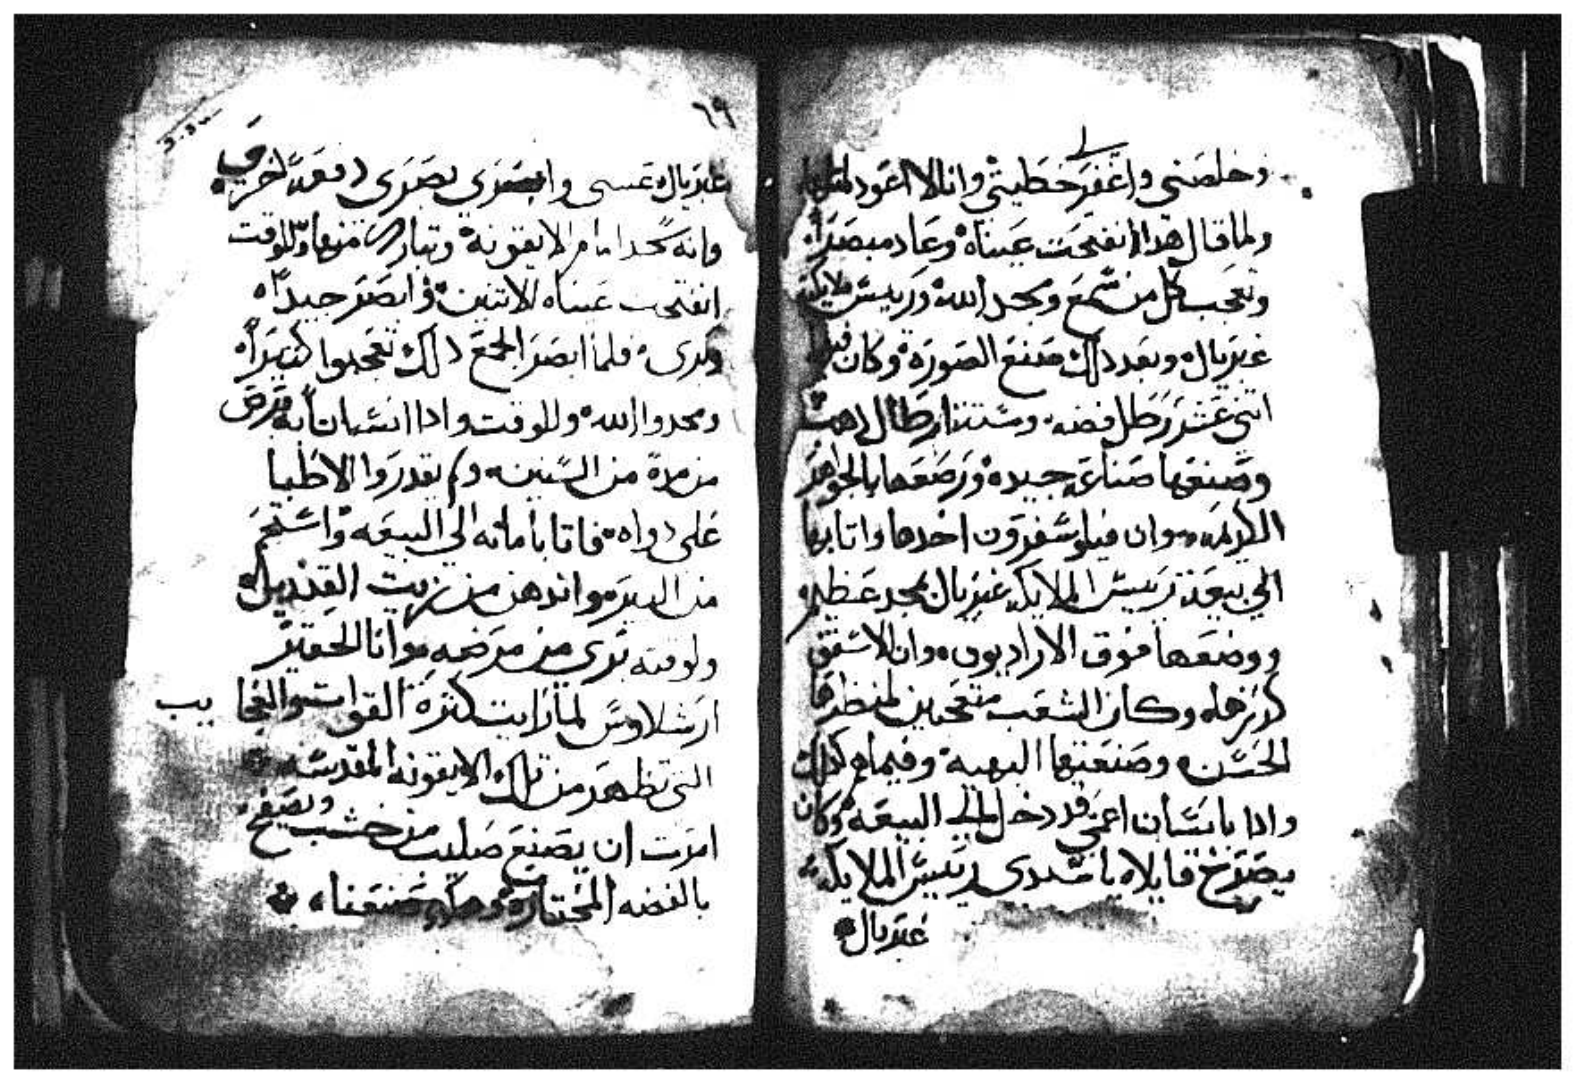 وخلصني واغفر لي خطيتي وانا لا اعود لمثلها
ولما قال هدا انفتحت عيناه وعاد مبصراً
وتعجب كل من سمع ومجد الله وريس الملايكة
غبريال وبعد دلك صنع الصورة وكان فيها
اتني عشر رطل فضه وستة ارطال دهب
وصنعها صناعه جيده ورصعها بالجواهر
الكريمه وان فيلوسفرون اخدها واتا بها
الي بيعة رييس الملايكه غبريال بمجد عظيم
ووضعها فوق الاراديون وان الاسقف
كرزها وكان الشعب متعجبين لمنظرها
الحسن وصنعتها البهية وفيما هم كدلك
وادا بانسان اعمي قد دخل الي البيعة وكان
يصرخ قايلا يا سيدي رييس الملايكه
غبريال
٦٩
غبريال عسى وابصر بصري دفعة اخري
وانه سجد امام الايقونة وتبارك منها وللوقت
انفتحت عيناه الاتنين وابصر جيداً
وبري فلما ابصر الجمع دلك تعجبوا كتيراً
ومجدوا الله وللوقت وادا انسان به مرض
من مدة من السنين ولم يقدروا الاطبا
علي دواه فاتا بامانه الي البيعه واستحم
من البير واندهن من زيت القنديل
ولوقته بري من مرضه وانا الحقير
ارشلاوس لما رايت كترة القوات والعجايب
التي تظهر من تلك الايقونه المقدسه
امرت ان يصنع صليب من خشب ويصفح
بالفضه المختارة وهكدا صنعنا